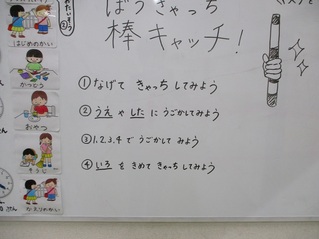 ぼうきゃっち
棒キャッチ!
①なげて きゃっちしてみよう
②うえ や した に うごかしてみよう
③1.2.3.4 で うごかして みよう
④いろ を きめて きゃっち してみよう
はじめのかい
かつどう
おやつ
そうじ
かえりのかい